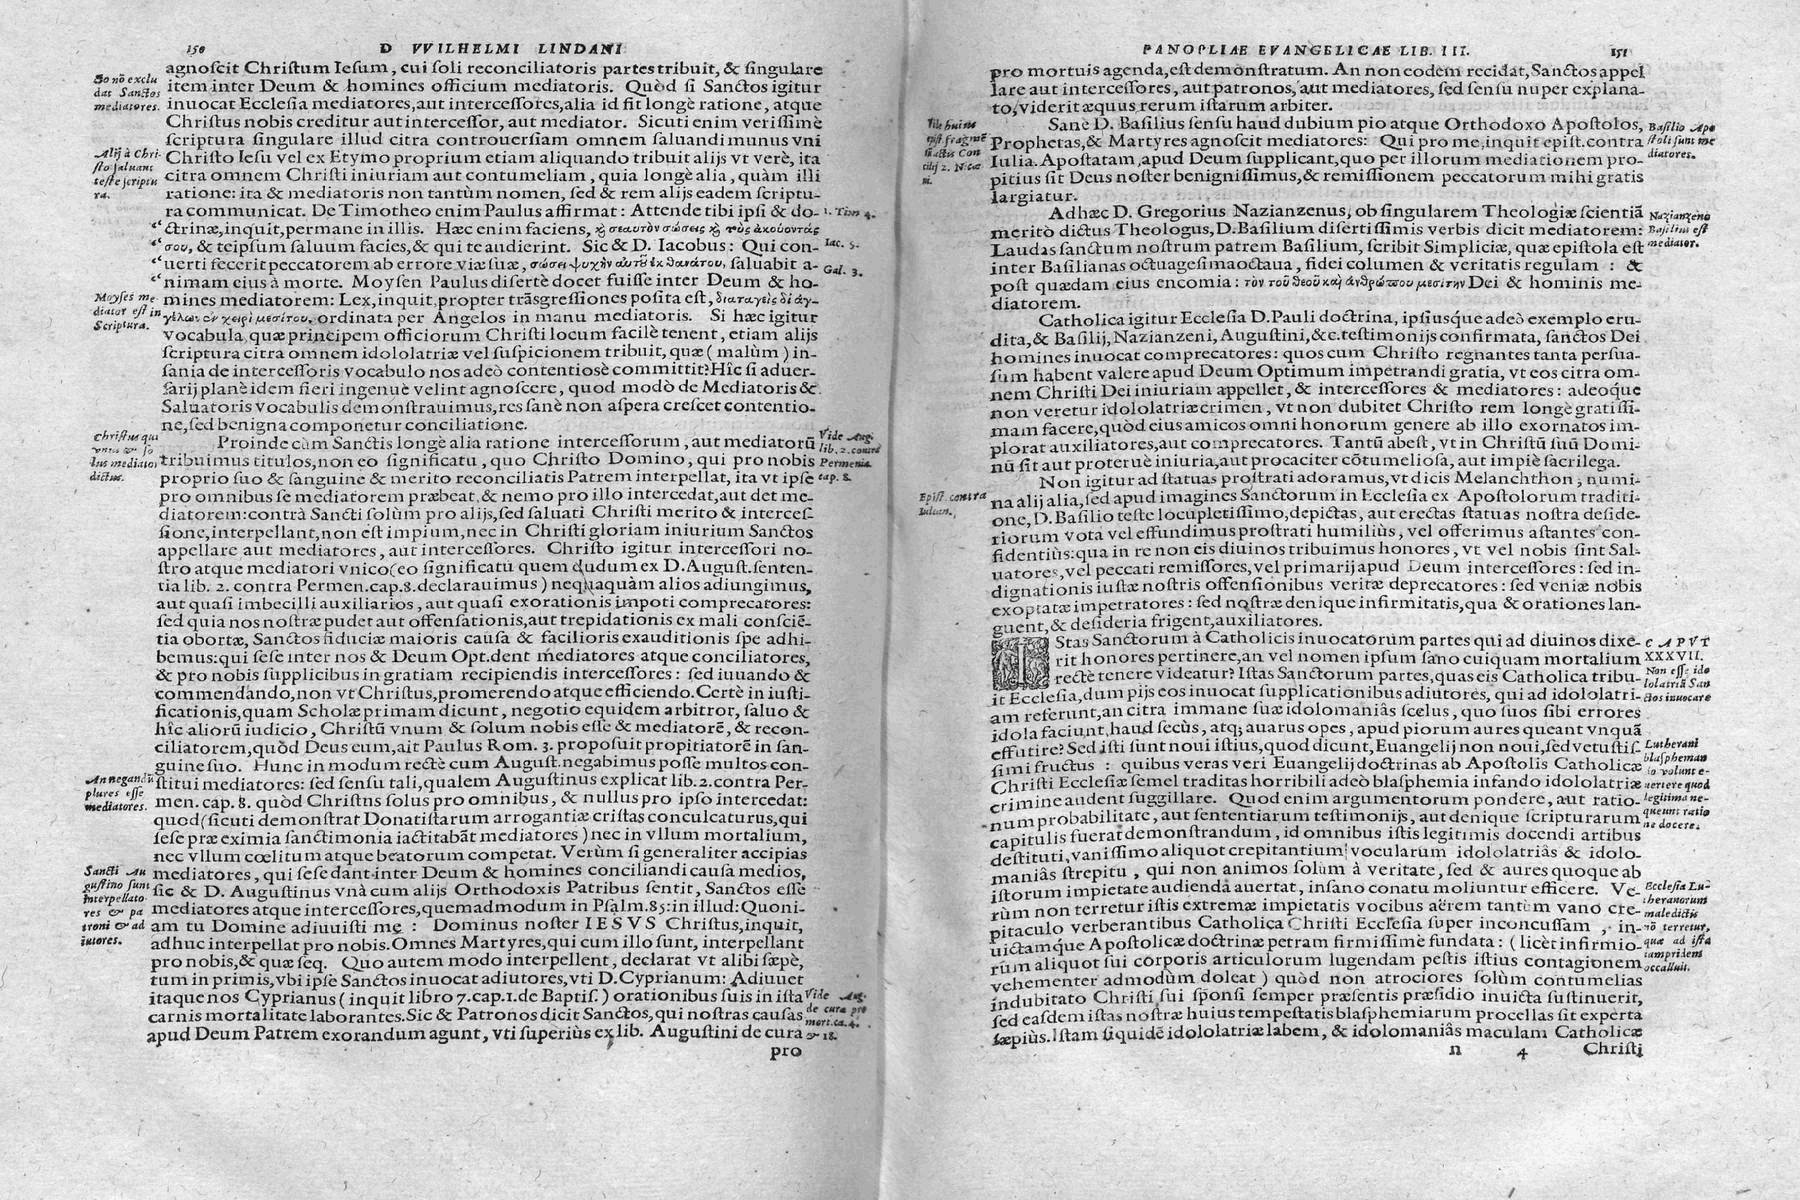 150
D VVILHELMI LINDANI
agnoſcit Chriſtum Ieſum, cui ſoli reconciliatoris partes tribuit, & ſingulare
item inter Deum & homines officium mediatoris. Quòd ſi Sanctos igitur
inuocat Eccleſia mediatores, aut interceſſores, alia id fit longè ratione, atque
Chriſtus nobis creditur aut interceſſor, aut mediator. Sicuti enim veriſſimè
ſcriptura ſingulare illud citra controuerſiam omnem ſaluandi munus vni
Chriſto Ieſu vel ex Etymo proprium etiam aliquando tribuit alijs vt verè, ita
citra omnem Chriſti iniuriam aut contumeliam, quia longè alia, quàm illi
ratione: ita & mediatoris non tantùm nomen, ſed & rem alijs eadem ſcriptu-
ra communicat. De Timotheo enim Paulus affirmat: Attende tibi ipſi & do-
ctrinæ, inquit, permane in illis. Hæc enim faciens, ϗ σεαυτὸν σώσεις ϗ τοὺς ἀκούοντάς
σου, & teipſum ſaluum facies, & qui te audierint. Sic & D. Iacobus: Qui con-
uerti fecerit peccatorem ab errore viæ ſuæ, σώσει ψυχὴν αυτοῦ ἐκ θανάτου, ſaluabit a-
nimam eius à morte. Moyſen Paulus diſertè docet fuiſſe inter Deum & ho-
mines mediatorem: Lex, inquit, propter trāſgreſſiones poſita eſt, διαταγεὶς δἰ ἀγ-
γέλων ἐν χειρὶ μεσίτου, ordinata per Angelos in manu mediatoris. Si hæc igitur
vocabula quæ principem officiorum Chriſti locum facilè tenent, etiam alijs
ſcriptura citra omnem idololatriæ vel ſuſpicionem tribuit, quæ (malùm) in-
ſania de interceſſoris vocabulo nos adeò contentiosè committit? Hîc ſi aduer-
ſarij planè idem fieri ingenuè velint agnoſcere, quod modò de Mediatoris &
Saluatoris vocabulis demonſtrauimus, res ſanè non aſpera creſcet contentio-
ne, ſed benigna componetur conciliatione.
Proinde cùm Sanctis longè alia ratione interceſſorum, aut mediatorū
tribuimus titulos, non eo ſignificatu, quo Chriſto Domino, qui pro nobis
proprio ſuo & ſanguine & merito reconciliatis Patrem interpellat, ita vt ipſe
pro omnibus ſe mediatorem præbeat, & nemo pro illo intercedat, aut det me-
diatorem: contrà Sancti ſolùm pro alijs, ſed ſaluati Chriſti merito & interceſ-
ſione, interpellant, non eſt impium, nec in Chriſti gloriam iniurium Sanctos
appellare aut mediatores, aut interceſſores. Chriſto igitur interceſſori no-
ſtro atque mediatori vnico (eo ſignificatu quem dudum ex D. Auguſt. ſenten-
tia lib. 2. contra Permen. cap. 8. declarauimus) nequaquàm alios adiungimus,
aut quaſi imbecilli auxiliarios, aut quaſi exorationis impoti comprecatores:
ſed quia nos noſtræ pudet aut offenſationis, aut trepidationis ex mali conſciē-
tia obortæ, Sanctos fiduciæ maioris cauſa & facilioris exauditionis ſpe adhi-
bemus: qui ſeſe inter nos & Deum Opt. dent mediatores atque conciliatores,
& pro nobis ſupplicibus in gratiam recipiendis interceſſores: ſed iuuando &
commendando, non vt Chriſtus, promerendo atque efficiendo. Certè in iuſti-
ficationis, quam Scholæ primam dicunt, negotio equidem arbitror, ſaluo &
hîc aliorū iudicio, Chriſtū vnum & ſolum nobis eſſe & mediatorē, & recon-
ciliatorem, quòd Deus eum, ait Paulus Rom. 3. propoſuit propitiatorē in ſan-
guine ſuo. Hunc in modum rectè cum Auguſt. negabimus poſſe multos con-
ſtitui mediatores: ſed ſenſu tali, qualem Auguſtinus explicat lib. 2. contra Per-
men. cap. 8. quòd Chriſtus ſolus pro omnibus, & nullus pro ipſo intercedat:
quod (ſicuti demonſtrat Donatiſtarum arrogantiæ criſtas conculcaturus, qui
ſeſe præ eximia ſanctimonia iactitabāt mediatores) nec in vllum mortalium,
nec vllum cœlitum atque beatorum competat. Verùm ſi generaliter accipias
mediatores, qui ſeſe dant inter Deum & homines conciliandi cauſa medios,
ſic & D. Auguſtinus vnà cum alijs Orthodoxis Patribus ſentit, Sanctos eſſe
mediatores atque interceſſores, quemadmodum in Pſalm. 85: in illud: Quoni-
am tu Domine adiuuiſti me : Dominus noſter IESVS Chriſtus, inquit,
adhuc interpellat pro nobis. Omnes Martyres, qui cum illo ſunt, interpellant
pro nobis, & quæ ſeq. Quo autem modo interpellent, declarat vt alibi ſæpè,
tum in primis, vbi ipſe Sanctos inuocat adiutores, vti D. Cyprianum: Adiuuet
itaque nos Cyprianus (inquit libro 7. cap. 1. de Baptiſ.) orationibus ſuis in iſta
carnis mortalitate laborantes. Sic & Patronos dicit Sanctos, qui noſtras cauſas
apud Deum Patrem exorandum agunt, vti ſuperiùs ex lib. Auguſtini de cura
pro
Alij à Chri-
ſto ſaluant
teſte ſcriptu
ra.
1. Tim 4.
Iac. 5.
Gal. 3.
Moyſes me-
diator eſt in
Scriptura.
Chriſtus qui
vnus & ſo
lus mediator
dictus.
Vide Aug.
lib. 2. contra
Permenia.
cap. 8.
An negandū
plures eſſe
mediatores.
Sancti Au
guſtino ſunt
interpellato-
res & pa
troni & ad
iutores.
Vide Aug.
de cura pro
mort. ca. 4.
& 18.
PANOPLIAE EVANGELICAE LIB. III.
151
pro mortuis agenda, eſt demonſtratum. An non eodem recidat, Sanctos appel
lare aut interceſſores, aut patronos, aut mediatores, ſed ſenſu nuper explana-
to, viderit æquus rerum iſtarum arbiter.
Sanè D. Baſilius ſenſu haud dubium pio atque Orthodoxo Apoſtolos,
Prophetas, & Martyres agnoſcit mediatores: Qui pro me, inquit epiſt. contra
Iulia. Apoſtatam, apud Deum ſupplicant, quo per illorum mediationem pro-
pitius ſit Deus noſter benigniſſimus, & remiſſionem peccatorum mihi gratis
largiatur.
Adhæc D. Gregorius Nazianzenus, ob ſingularem Theologiæ ſcientiā
meritò dictus Theologus, D. Baſilium diſertiſſimis verbis dicit mediatorem:
Laudas ſanctum noſtrum patrem Baſilium, ſcribit Simpliciæ, quæ epiſtola eſt
inter Baſilianas octuageſima octaua, fidei columen & veritatis regulam : &
poſt quædam eius encomia: τὸν τοῦ θεοῦ καὶ ἀνθρώπου μεσίτην Dei & hominis me-
diatorem.
Catholica igitur Eccleſia D. Pauli doctrina, ipſiusque adeò exemplo eru-
dita, & Baſilij, Nazianzeni, Auguſtini, &c. teſtimonijs confirmata, ſanctos Dei
homines inuocat comprecatores: quos cum Chriſto regnantes tanta perſua-
ſum habent valere apud Deum Optimum impetrandi gratia, vt eos citra om-
nem Chriſti Dei iniuriam appellet, & interceſſores & mediatores: adeoque
non veretur idololatriæ crimen, vt non dubitet Chriſto rem longè gratiſſi-
mam facere, quòd eius amicos omni honorum genere ab illo exornatos im-
plorat auxiliatores, aut comprecatores. Tantū abeſt, vt in Chriſtū ſuū Domi-
nū ſit aut proteruè iniuria, aut procaciter cōtumelioſa, aut impiè ſacrilega.
Non igitur ad ſtatuas proſtrati adoramus, vt dicis Melanchthon, numi-
na alij alia, ſed apud imagines Sanctorum in Eccleſia ex Apoſtolorum traditi-
one, D. Baſilio teſte locupletiſſimo, depictas, aut erectas ſtatuas noſtra deſide-
riorum vota vel effundimus proſtrati humiliùs, vel offerimus aſtantes con-
fidentiùs: qua in re non eis diuinos tribuimus honores, vt vel nobis ſint Sal-
uatores, vel peccati remiſſores, vel primarij apud Deum interceſſores: ſed in-
dignationis iuſtæ noſtris offenſionibus veritæ deprecatores: ſed veniæ nobis
exoptatæ impetratores: ſed noſtræ denique infirmitatis, qua & orationes lan-
guent, & deſideria frigent, auxiliatores.
IStas Sanctorum à Catholicis inuocatorum partes qui ad diuinos dixe-
rit honores pertinere, an vel nomen ipſum ſano cuiquam mortalium
rectè tenere videatur? Iſtas Sanctorum partes, quas eis Catholica tribu-
it Eccleſia, dum pijs eos inuocat ſupplicationibus adiutores, qui ad idololatri-
am referunt, an citra immane ſuæ idolomaniâs ſcelus, quo ſuos ſibi errores
idola faciunt, haud ſecùs, atq; auarus opes, apud piorum aures queant vnquā
effutire? Sed iſti ſunt noui iſtius, quod dicunt, Euangelij non noui, ſed vetuſtiſ-
ſimi fructus : quibus veras veri Euangelij doctrinas ab Apoſtolis Catholicæ
Chriſti Eccleſiæ ſemel traditas horribili adeò blaſphemia infando idololatriæ
crimine audent ſuggillare. Quod enim argumentorum pondere, aut ratio-
num probabilitate, aut ſententiarum teſtimonijs, aut denique ſcripturarum
capitulis fuerat demonſtrandum, id omnibus iſtis legitimis docendi artibus
deſtituti, vaniſſimo aliquot crepitantium vocularum idololatriâs & idolo-
maniâs ſtrepitu, qui non animos ſolùm à veritate, ſed & aures quoque ab
iſtorum impietate audienda auertat, inſano conatu moliuntur efficere. Ve-
rùm non terretur iſtis extremæ impietatis vocibus aërem tantùm vano cre-
pitaculo verberantibus Catholica Chriſti Eccleſia ſuper inconcuſſam, in-
uictamque Apoſtolicæ doctrinæ petram firmiſſimè fundata: (licèt infirmio-
rum aliquot ſui corporis articulorum lugendam peſtis iſtius contagionem
vehementer admodùm doleat) quòd non atrociores ſolùm contumelias
indubitato Chriſti ſui ſponſi ſemper præſentis præſidio inuicta ſuſtinuerit,
ſed eaſdem iſtas noſtræ huius tempeſtatis blaſphemiarum procellas ſit experta
ſæpiùs. Iſtam ſiquidē idololatriæ labem, & idolomaniâs maculam Catholicæ
n 4 Chriſti
Baſilio Apo
ſtoli ſunt me
diatores.
Nazianzeno
Baſilius eſt
mediator.
Epiſt. contra
Iulian.
CAPVT
XXXVII.
Non eſſe ido
lolatriā San
ctos inuocare
Lutherani
blaſpheman
do volunt e-
uertere quod
legitima ne-
queunt ratio
ne docere.
Eccleſia Lu-
theranorum
maledictis
nō terretur,
quæ ad iſta
iampridem
occalluit.